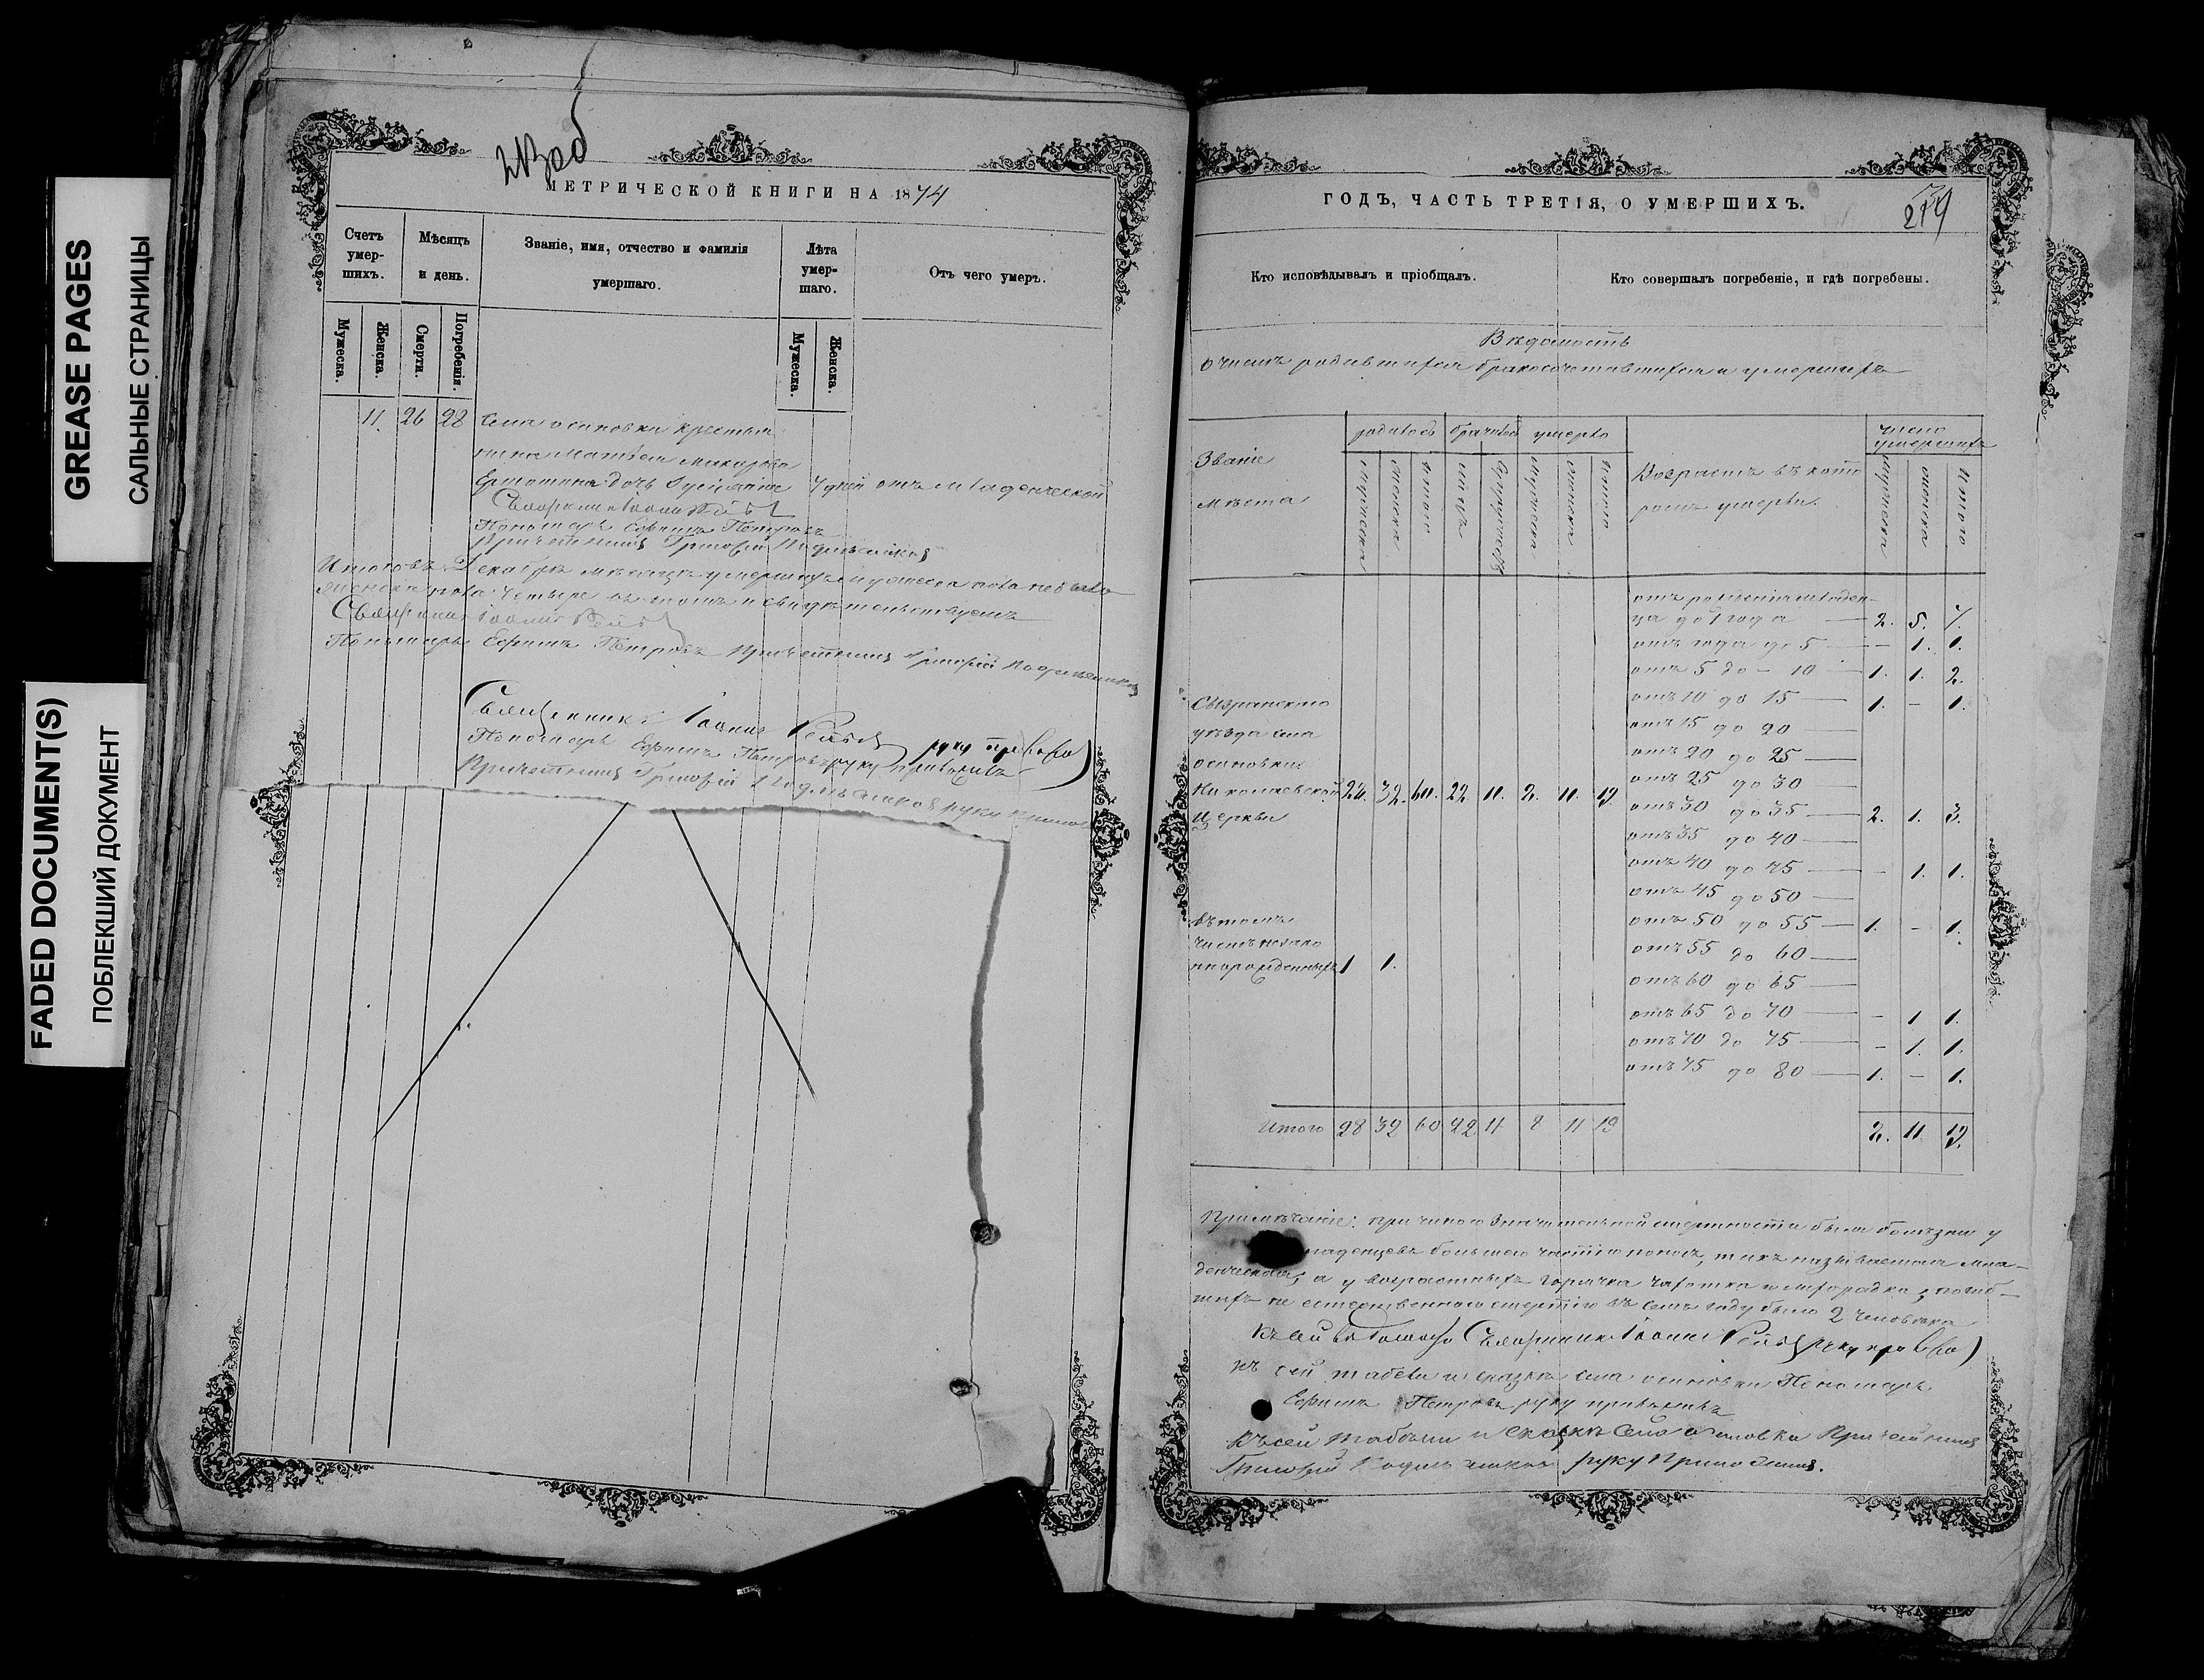 GREASE PAGES
САЛЬНЫЕ СТРАНИЦЫ
FADED DOCUMENT(S)
ПОБЛЕКШИЙ ДОКУМЕНТ
МЕТРИЧЕСКОЙ КНИГИ НА 1874
Счетъ умер-шихъ.
Мѣсяцъ и день.
Званіе, имя, отчество и фамилія умершаго.
Лѣта умер-шаго.
Отъ чего умеръ.
Мужеска.
Женска.
Смерти.
Погребенія.
Мужеска.
Женска.
11. 26 28 села осиновки крестья
нина Матвея Макарова
дочь 4 дней отъ младенческой
Пономарь Ефимъ Петровъ
Причетникъ Григорій
Итого въ Декабрѣ мѣсяцѣ умершихъ мужеска пола не было
женска пола четыре въ томъ и свидѣтельствуемъ
Пономарь Ефимъ Петровъ Причетникъ Григорій
Священникъ Іоаннъ руку
Пономарь Ефимъ Петровъ руку приложилъ
Причетникъ Григорій руку
ГОДЪ, ЧАСТЬ ТРЕТІЯ, О УМЕРШИХЪ.
219
Кто исповѣдывалъ и пріобщалъ.
Кто совершалъ погребеніе, и гдѣ погребены.
Вѣдомость
о числѣ родившихся бракосочетавшихся и умершихъ
Званіе мѣста
родилось
умерло
мужеска
женска
итого
мужеска
женска
итого
Возрастъ въ кото
ромъ умерли.
число умершихъ
мужеска
женска
итого
отъ рожденія младен-
ца до 1 года 2. 5. 7.
отъ года до 5 - 1. 1.
отъ 5 до - 10 1. 1. 2.
отъ 10 до 15 1. - 1.
отъ 15 до 20
отъ 20 до 25
отъ 25 до 30
отъ 30 до 35 2. 1. 3.
отъ 35 до 40
отъ 40 до 45 - 1. 1.
отъ 45 до 50
отъ 50 до 55 1. - 1.
отъ 55 до 60
отъ 60 до 65
отъ 65 до 70 - 1 1.
отъ 70 до 75 - 1. 1.
отъ 75 до 80 1. - 1.
Сызранскаго
уѣзда села
осиновки
Николаевской 28. 32. 60. 22 11. 8. 11. 19.
Церкви
въ томъ
числѣ незако
ннорожденныхъ 1 1.
Итого 28 32 60 22 11 8 11 19
8. 11. 19.
Примѣчаніе: причиною значительной смертности были болѣзни у
младенцевъ большею частію так называемая мла-
денческая, а у возрастныхъ горячка чахотка и лихорадка, погиб-
шихъ не естественною смертію въ семъ году было 2 человѣка
Священникъ Іоаннъ руку
къ сей села осиновки Пономарь
Ефимъ Петровъ руку приложилъ
Къ сей села осиновки Причетникъ
Григорій руку приложилъ.